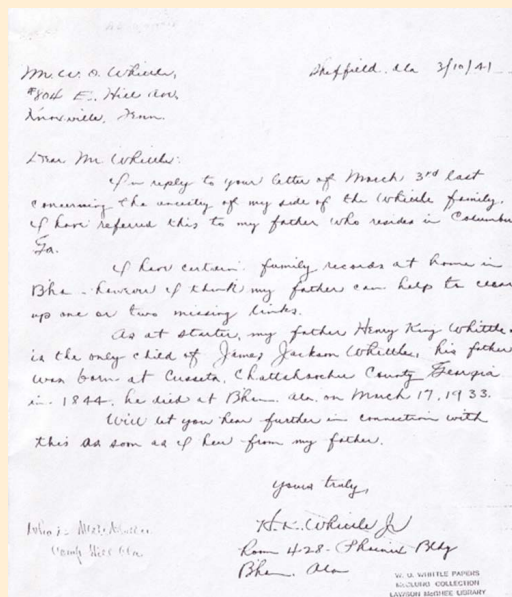 Sheffield, Ala 3/10/41
Mr. W. O. Whittle,
#804 E. Hill Ave,
Knoxville, Tenn.
Dear Mr Whittle:
In reply to your letter of March 3rd last
concerning the ancestry of my side of the Whittle family.
I have referred this to my father who resides in Columbus
Ga.
I have certain family records at home in
Bham - however I think my father can help to clear
up one or two missing links.
As at starter, my father Henry King Whittle
is the only child of James Jackson Whittle, his father
was born at Cusseta, Chattahoochee County Georgia
in 1844, he died at Bham. Ala. on March 17, 1933.
Will let you hear further in connection with
this as soon as I hear from my father.
Yours truly,
H. K. Whittle Jr
Room 428 - Phoenix Bldg
Bham. Ala
Camp Hill Ala
W. O. WHITTLE PAPERS
McCLUNG COLLECTION
LAWSON McGHEE LIBRARY